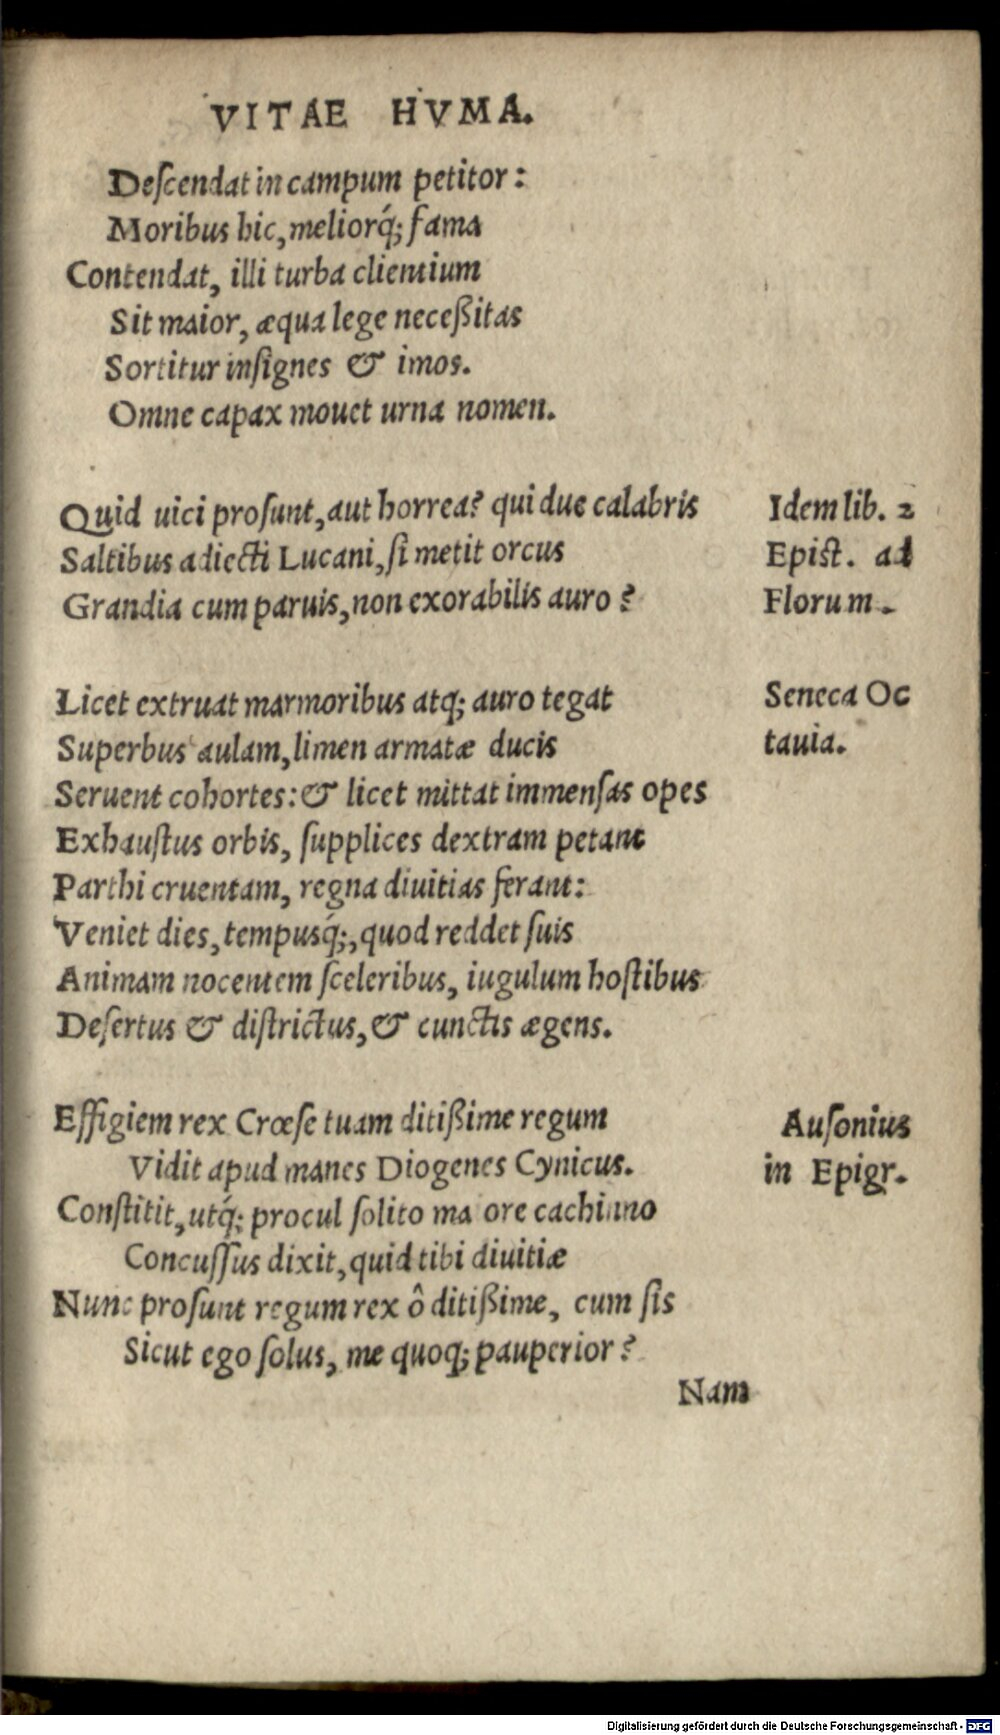 VITAE HVMA.
Deſcendat in campum petitor:
Moribus hic, meliorq́; fama
Contendat, illi turba clientium
Sit maior, æqua lege neceßitas
Sortitur inſignes & imos.
Omne capax mouet urna nomen.
Quid uici proſunt, aut horrea? qui due calabris
Saltibus adiecti Lucani, ſi metit orcus
Grandia cum paruis, non exorabilis auro?
Idem lib. 2
Epist. ad
Florum.
Licet extruat marmoribus atq; auro tegat
Superbus aulam, limen armatæ ducis
Seruent cohortes: & licet mittat immenſas opes
Exhauſtus orbis, ſupplices dextram petant
Parthi cruentam, regna diuitias ferant:
Veniet dies, tempusq́;, quod reddet ſuis
Animam nocentem ſceleribus, iugulum hoſtibus
Deſertus & diſtrictus, & cunctis ægens.
Seneca Oc
tauia.
Effigiem rex Crœſe tuam ditißime regum
Vidit apud manes Diogenes Cynicus.
Conſtitit, utq́; procul ſolito ma ore cachinno
Concuſſus dixit, quid tibi diuitiæ
Nunc proſunt regum rex ô ditißime, cum ſis
Sicut ego ſolus, me quoq; pauperior?
Auſonius
in Epigr.
Nam
Digitalisierung gefördert durch die Deutsche Forschungsgemeinschaft - DFG